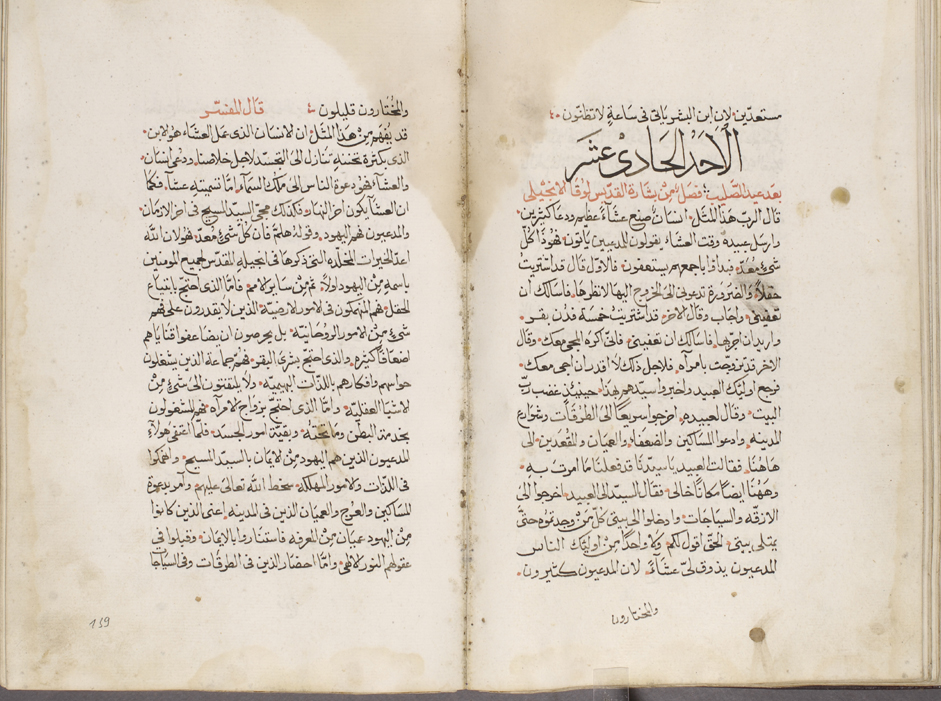 مستعدّين. لان ابن البشر ياتى فى ساعةٍ لا تظنّون
الأحد الحادى عشر
بعد عيد الصليب فصل من بشارة القديس لوقا الانجيلى
قال الربّ هذا المثل. انسان صنع عشاءً عظيم ودعا كثيرين.
وارسل عبيده وقت العشاء يقولون للمدعيين ياتون. فهوذا كلّ
شىءٍ مُعَدّ. فبداوا باجمعهم يستعفون. فالاول قال قد اشتريت
حقلاً والضرورة تدعونى الى الخروج اليها لانظرها. فاسالك ان
تعفينى. واجاب وقال الاخر. قد اشتريت خمسة فدن بقر.
واريد ان اجرّبها. فاسالك ان تعفينى. فانّى كره المجى معك. وقال
الاخر قد تزوجت بامرآه. فلاجل ذلك لا اقدر ان اجى معك.
فرجع اوليك العبيد واخبروا سيّدهم بهذا. حينيذٍ غضب ربّ
البيت. وقال لعبيده. اخرجوا سريعاً الى الطرقات وشوارع
المدينه. وادعوا المساكين والضعفاء والعميان والمقعدين الى
هاهنا. فقالت العبيد يا سيّدنا قد فعلنا ما امرت به.
وههنا ايضاً مكاناً خالى. فقال السيّد الى العبيد. اخرجوا الى
الازقّه والسياجات. وادخلوا الى بيتى كلّ مَن وجدتموه حتّى
يمتلى بيتى. الحقّ اقول لكم. ولا واحداً من اوليك الناس
المدعيون يذوق لىّ عشاءً. لان المدعيون كثيرون.
والمختارون
والمختارون قليلون قال المفسّر
قد يُفهَم من هذا المثل. ان الانسان الذى عمل العشاء هو الابن.
الذى بكثرة تحننه تنازل الى التجسّد لاجل خلاصنا. ودُعى انسان
والعشاء فهو دعوة الناس الى ملك السماء. امّا تسميته عشآ. فكما
ان العشا يكون اخر النهار. فكذلك مجى السيّد المسيح فى اخر الازمان.
والمدعيون هم اليهود. وقوله هلمّ فان كلّ شىءٍ مُعدّ. فهو لان الله
اعدّ الخيرات المخلّده التى ذكرها فى انجيله المقدّس لجميع المومنين
باسمه من اليهود اولاً. ثم من ساير الامم. فامّا الذى احتجّ بابتياع
الحقل. هم المنهمكون فى الامور الارضيّة. الذين لا يقدرون على فهم
شىءٍ من الامور الروحانيّة. بل يحرصون ان يضاعفوا قناياهم
اضعافاً كثيره. والذى احتجّ بشرى البقر. فهم جماعة الذين يشغلون
حواسهم وافكارهم باللذّات البهيميّه. ولا يلتفتون الى شىءٍ من
الاشيا العقليّة. وامّا الذى احتجّ بزواج الامرآه. فهم المشغولون
بخدمة البطن وما تحته. وبقيّة امور الجسد. فلمّا اعتفى هولاءِ
المدعيون الذين هم اليهود من الايمان بالسيد المسيح. وانهمكوا
فى اللذّات والامور المهلكه. سخط الله تعالى عليهم. وآمر بدعوة
المساكين والعرج والعميان الذين فى المدينه. اعنى الذين كانوا
من اليهود عميان من المعرفه فاستناروا بالايمان. وقبلوا فى
عقولهم النور الالهى. وامّا احضار الذين فى الطرقات وفى السياجا
139